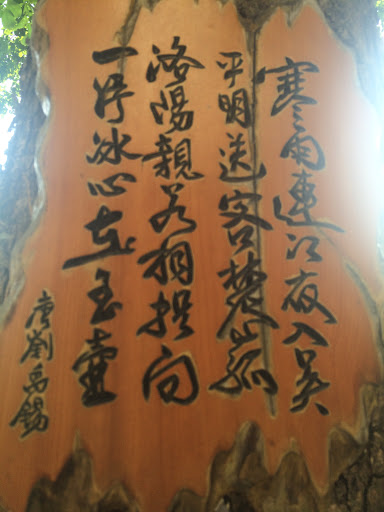 寒雨連江夜入吳
平明送客楚山孤
洛陽親若相向
一片冰心在玉壺
唐劉禹錫